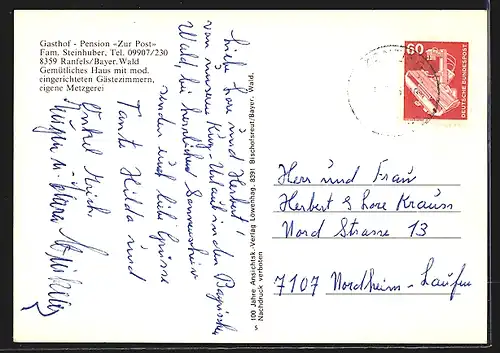 Gasthof - Pension «Zur Post»
Fam. Steinhuber, Tel. 09907/230
8359 Ranfels/Bayer. Wald
Gemütliches Haus mit mod.
eingerichteten Gästezimmern,
eigene Metzgerei
Liebe Lore und Herbert!
von unserem Kurz-Urlaub in den Bayrischen
Wald, bei herrlichem Sonnenschein
senden euch liebe Grüsse
Tante Hilda und
Onkel Erich.
100 Jahre Ansichtsk.-Verlag Löwenhag, 8391 Bischofsreut/Bayer. Wald.
Nachdruck verboten
60
DEUTSCHE BUNDESPOST
Herr und Frau
Herbert & Lore Krauss
Nord Strasse 13
7107 Nordheim-Laufen